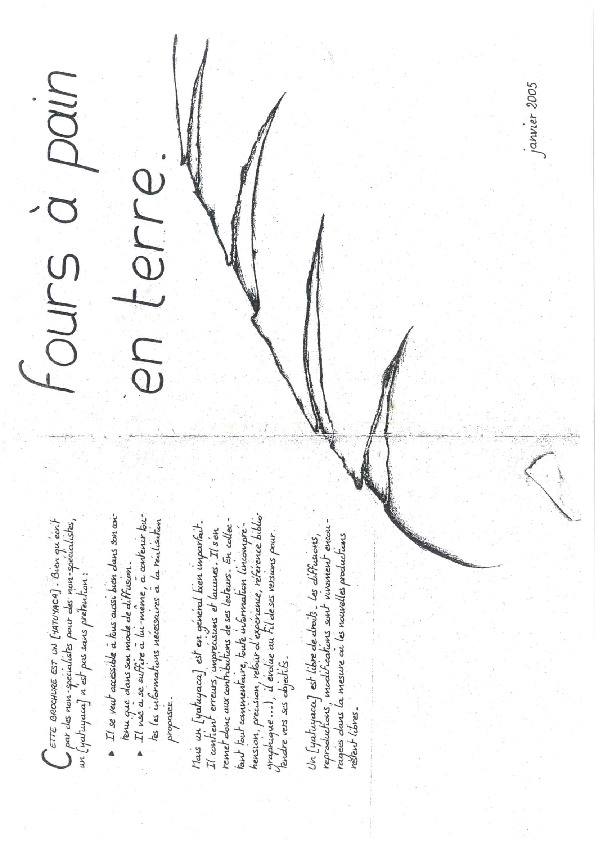 fours à pain
en terre.
janvier 2005
CETTE BROCHURE EST UN [YATUYACA]. Bien qu'écrit
par des non-spécialistes pour des non-spécialistes,
un [yatuyaca] n'est pas sans prétention :
▸ Il se veut accessible à tous aussi bien dans son con-
tenu que dans son mode de diffusion.
▸ Il vise à se suffire à lui-même, à contenir tou-
tes les informations nécessaires à la réalisation
proposée.
Mais un [yatuyaca] est en général bien imparfait.
Il contient erreurs, imprécisions et lacunes. Il s'en
remet donc aux contributions de ses lecteurs. En collec-
tant tout commentaire, toute information (incompré-
hension, précision, retour d'expérience, référence biblio-
graphique...), il évolue au fil de ses versions pour
tendre vers ses objectifs.
Un [yatuyaca] est libre de droits. Les diffusions,
reproductions, modifications sont vivement encou-
ragées dans la mesure où les nouvelles productions
restent libres.